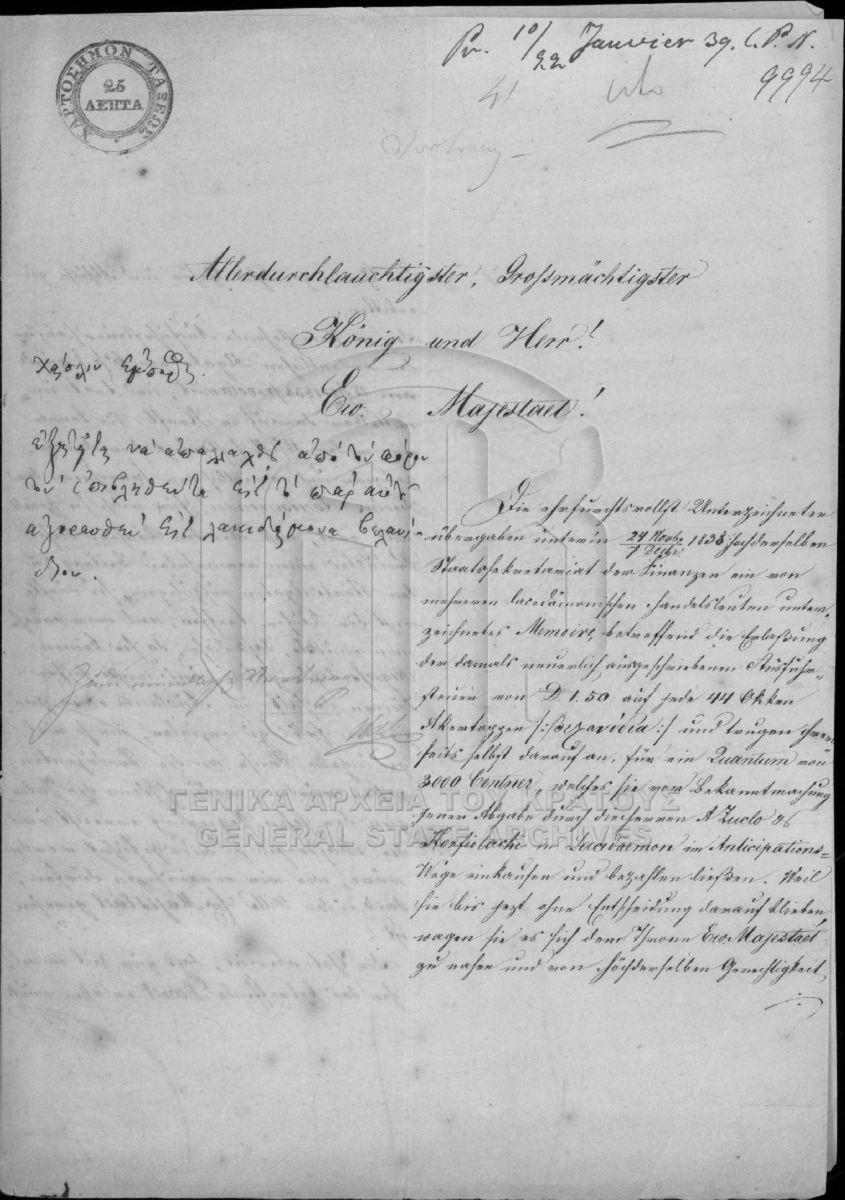 ΧΑΡΤΟΣΗΜΟΝ ΤΑΞΕΩΣ
25
ΛΕΠΤΑ
Pr. 10/22 Janvier 39. C. P. N.
9994
Vortrag
Allerdurchlauchtigster, Grossmächtigster
König und Herr!
Ew. Majestaet!
ἐξῃτεῖτο νὰ ἀπαλλαχθῇ ἀπὸ τὸν φόρον
τὸν ἐπιβληθέντα εἰς τὸ παρ' αὐτοῦ
ἀγορασθὲν εἰς Λακεδαίμονα βελανί-
διον.
Die ehrfurchtsvollst Unterzeichneten
übergaben unterm 24 Novb./7 Decbr. 1838 hochderselben
Staatssekretariat der Finanzen ein von
mehreren lacedämonischen Handelsleuten unter-
zeichnetes Memoire, betreffend die Erlaßung
der damals neuerlich ausgeschriebenen Ausfuhr-
steuer von D 1.50 auf jede 44 Okken
Akertoppen /: βελανίδια :/ und trugen ihrer-
seits selbst darauf an, für ein Quantum von
3000 Centner, welches sie vor Bekanntmachung
jener Abgabe durch die Herren A Zuclo &
Korfiotachi in Lacedaemon im Anticipations-
Wege einkaufen und bezahlen ließen. Weil
sie bis jezt ohne Entscheidung darauf blieben,
wagen sie es sich dem Throne Ew. Majestaet
zu nahen und von Höchderselben Gerechtigkeit
ΓΕΝΙΚΑ ΑΡΧΕΙΑ ΤΟΥ ΚΡΑΤΟΥΣ
GENERAL STATE ARCHIVES